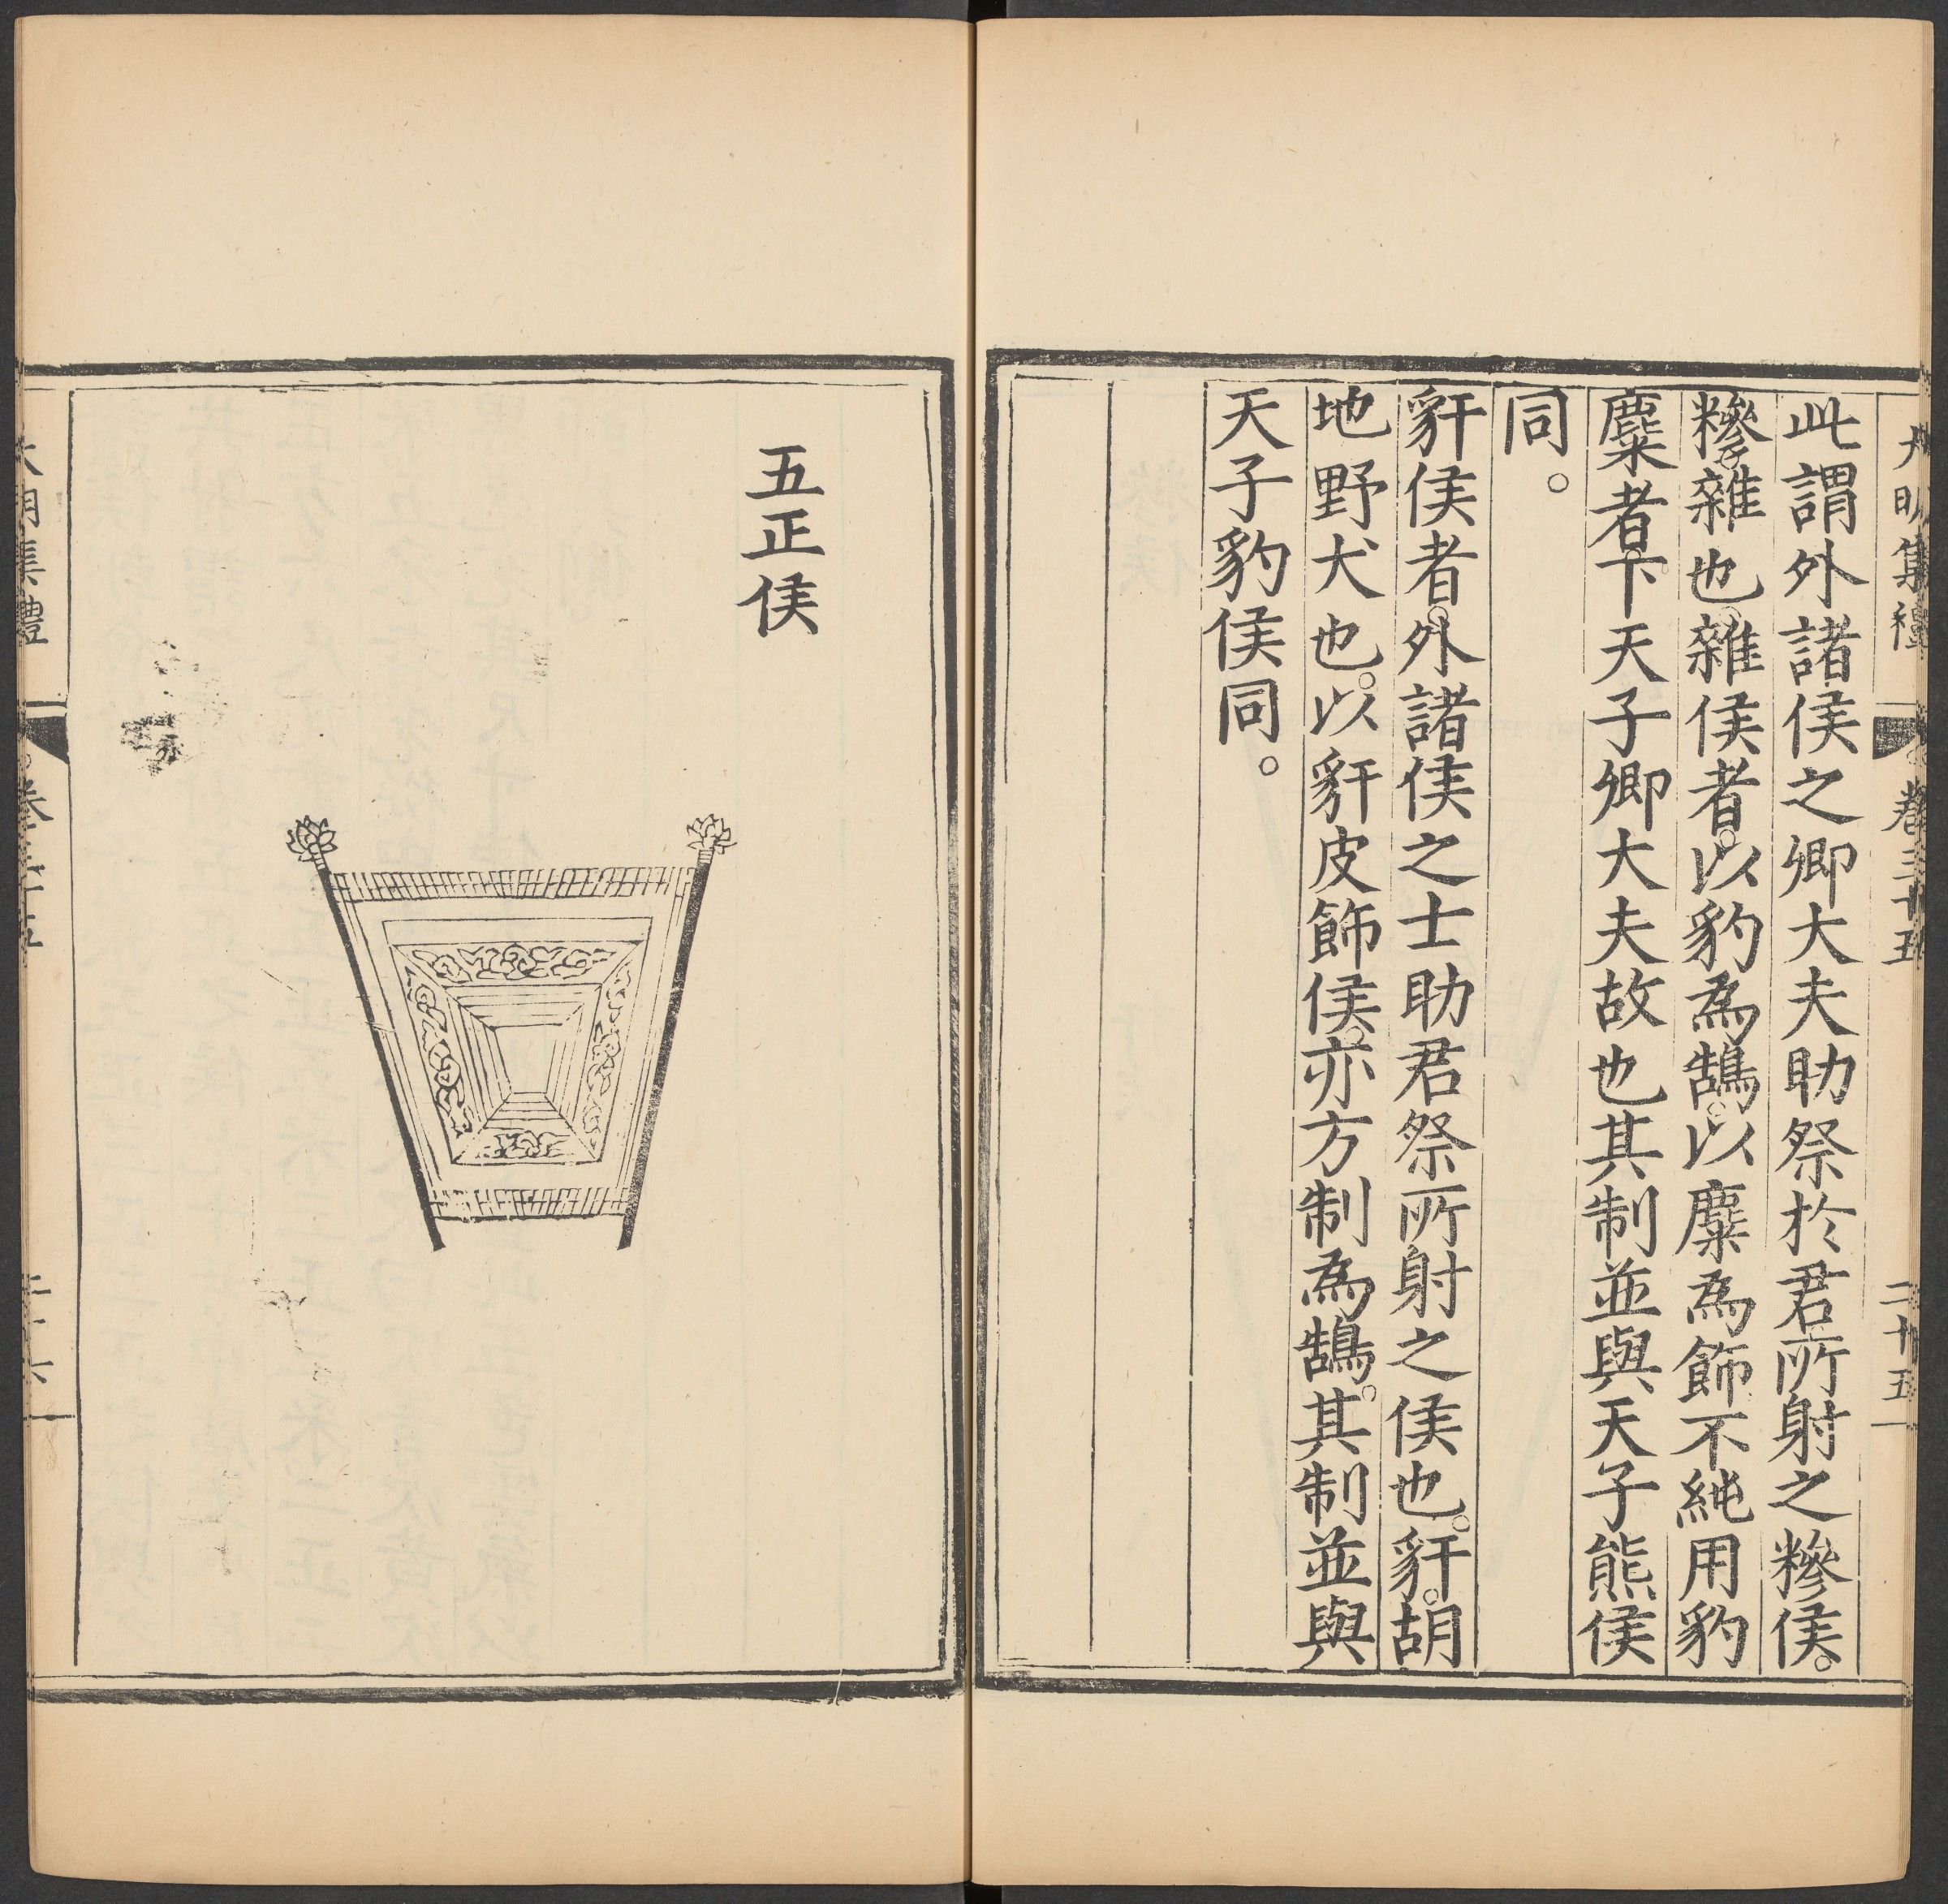 大明集禮 卷三十五 二十五
此謂外諸侯之卿大夫助祭於君所射之糝侯。
糝雜也。雜侯者。以豹為鵠。以麋為飾不純用豹
麋者。下天子卿大夫故也其制並與天子熊侯
同。
豻侯者。外諸侯之士助君祭所射之侯也。豻。胡
地野犬也。以豻皮飾侯。亦方制為鵠。其制並與
天子豹侯同。
五正侯
大明集禮 卷三十五 二十六